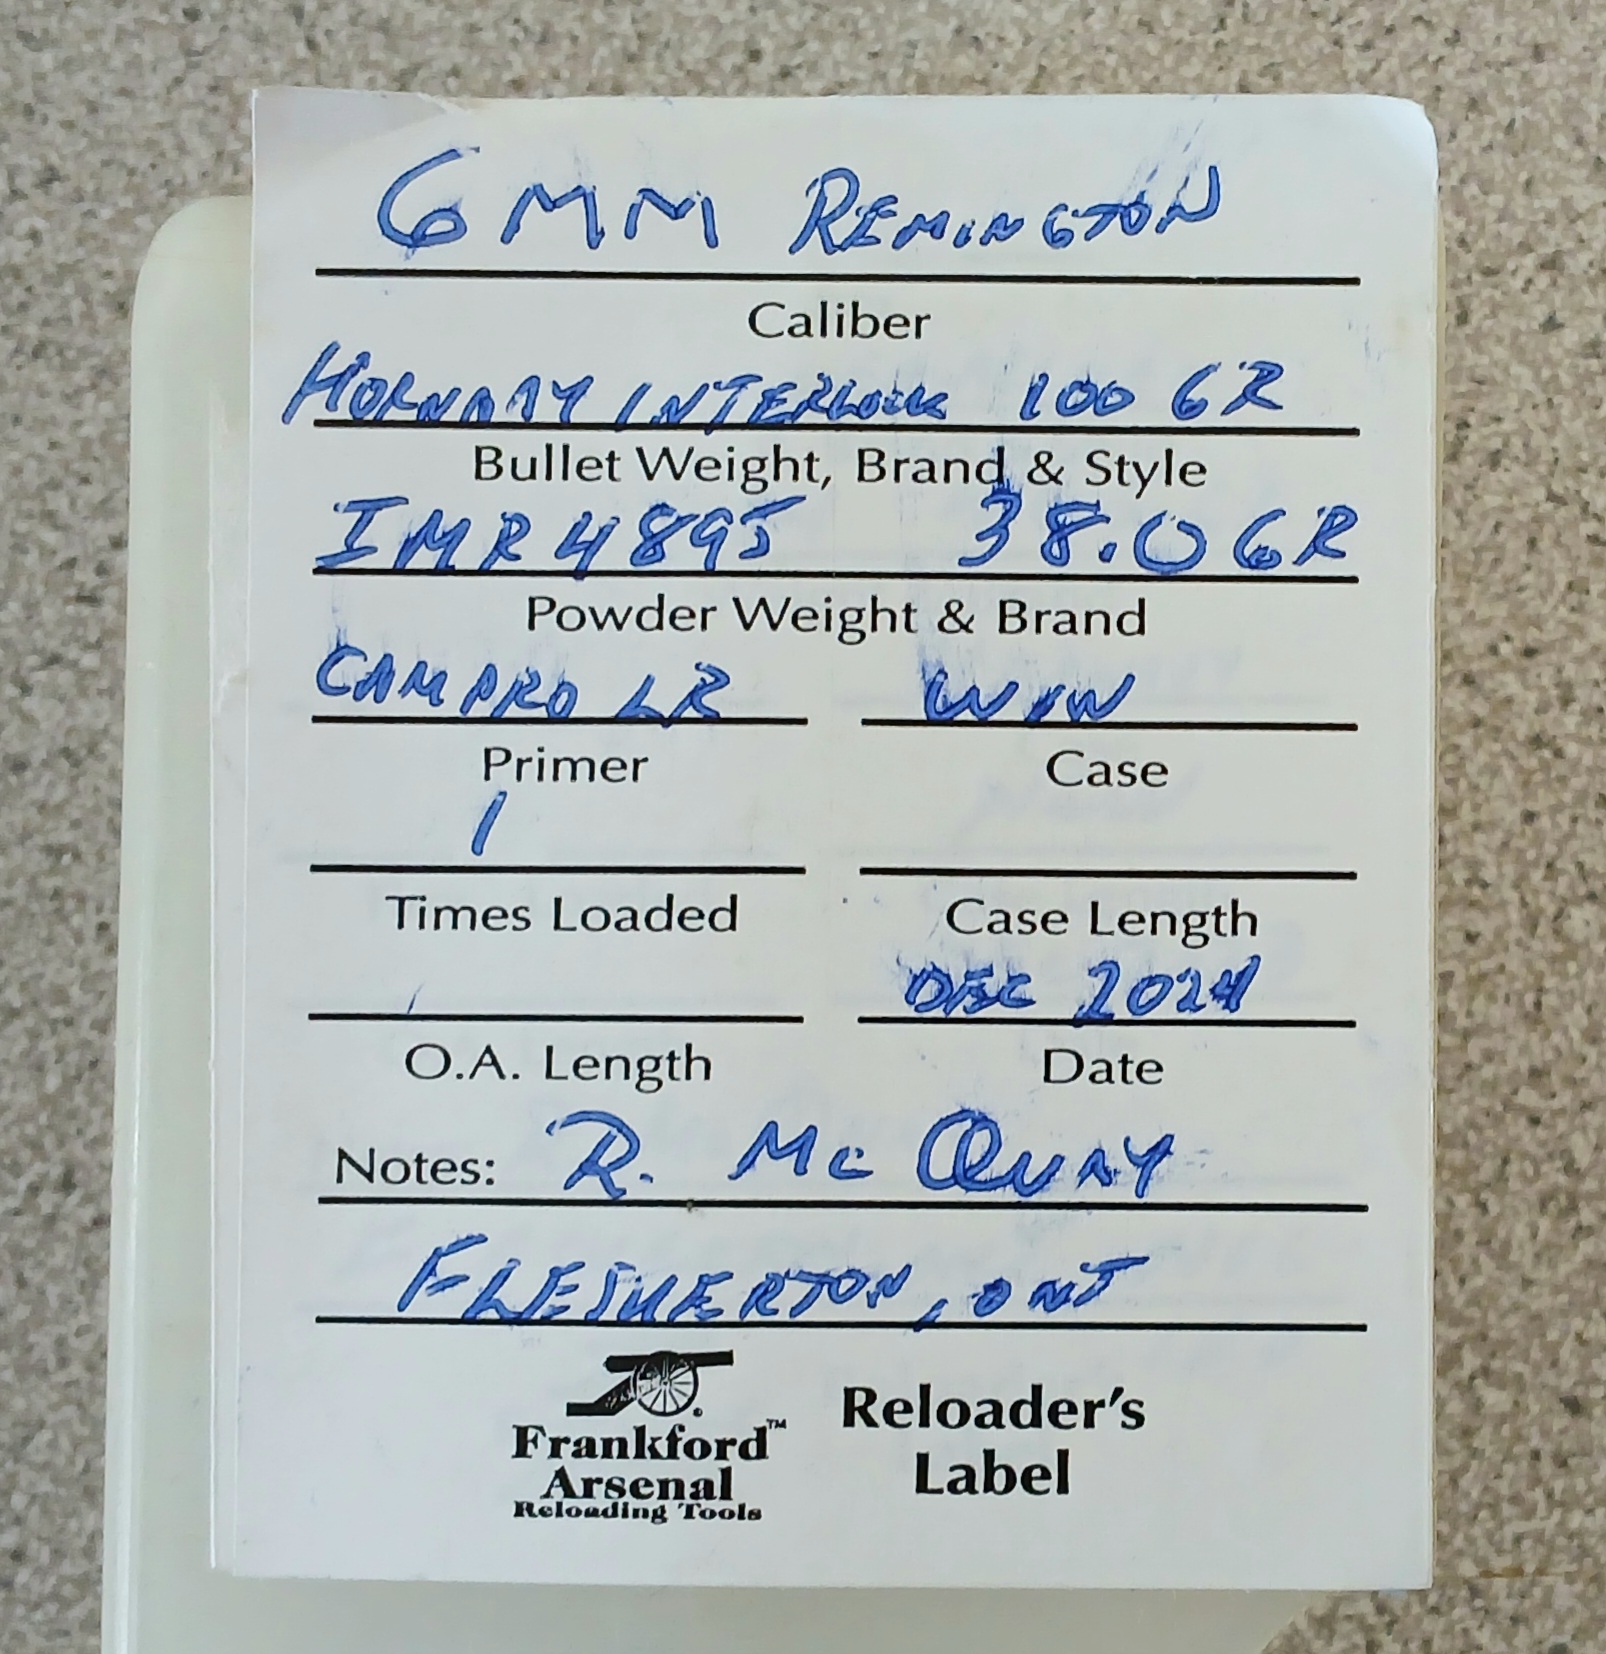 6MM REMINGTON
Caliber
HORNADY INTERLOCK 100 GR
Bullet Weight, Brand & Style
IMR 4895 38.0 GR
Powder Weight & Brand
CAMPRO LR WIN
Primer Case
1
Times Loaded Case Length
DEC 2024
O.A. Length Date
Notes: R. Mc QUAY
FLESHERTON, ONT
Frankford™ Reloader's
Arsenal Label
Reloading Tools